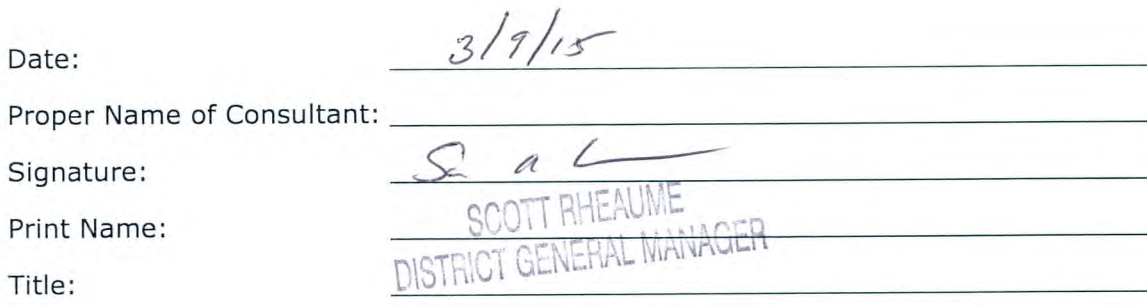 Date: 3/9/15
Proper Name of Consultant:
Signature:
Print Name: SCOTT RHEAUME
Title: DISTRICT GENERAL MANAGER